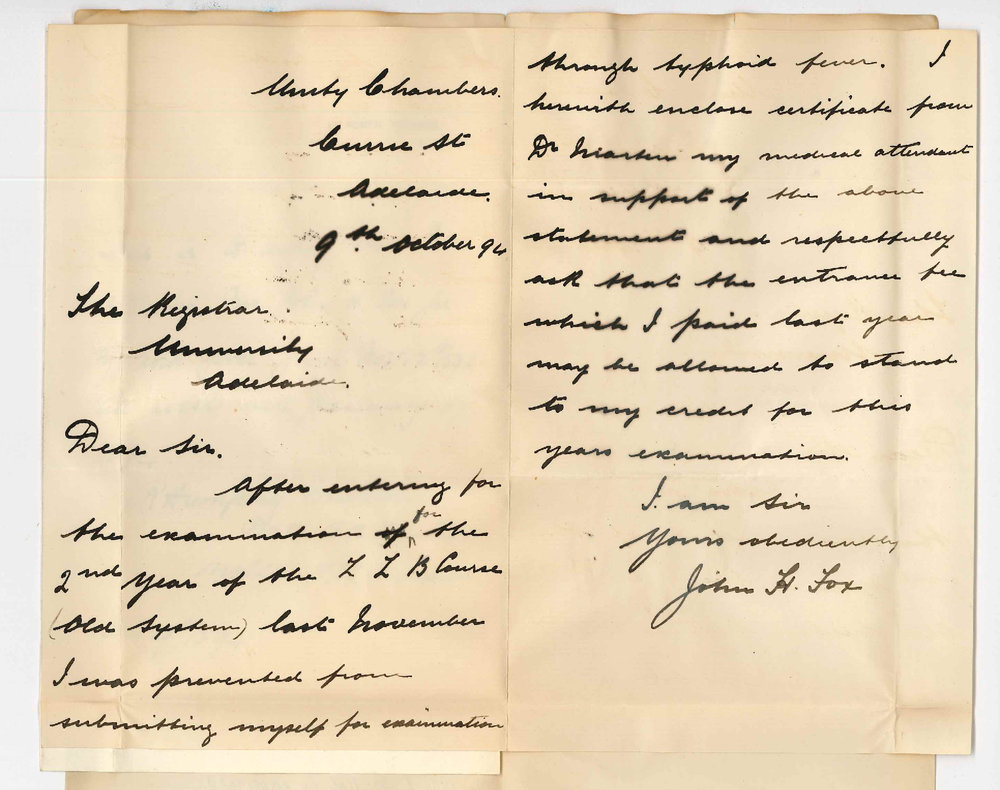 Unity Chambers.
Currie St
Adelaide.
9th. October 94
The Registrar.
University
Adelaide.
Dear Sir.
After entering for
the examination of for the
2nd Year of the L L B Course
(Old System) last November
I was prevented from
submitting myself for examination
through typhoid fever. I
herewith enclose certificate from
Dr Marten my medical attendant
in support of the above
statement and respectfully
ask that the entrance fee
which I paid last year
may be allowed to stand
to my credit for this
years examination.
I. am Sir
Yours obediently
John H. Fox